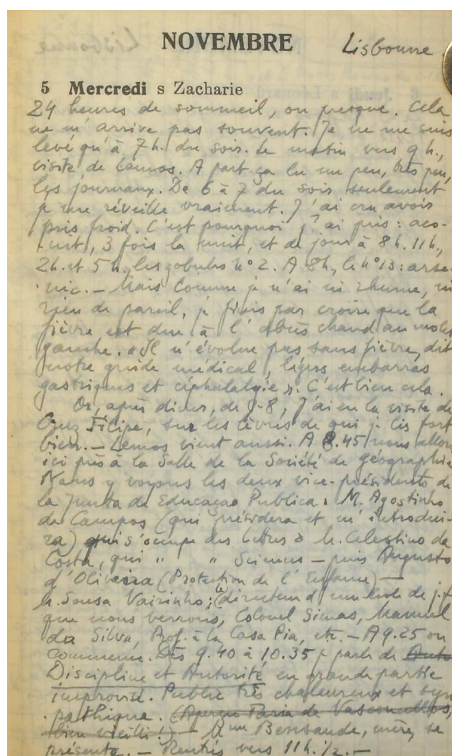 NOVEMBRE Lisbonne
5 Mercredi s Zacharie
24 heures de sommeil, ou presque. Cela
ne m'arrive pas souvent. Je ne me suis
levé qu'à 7h. du soir. Le matin vers 9 h.,
visite de Lemos. A part ça lu un peu, très peu,
les journaux. De 6 à 7 du soir seulement
je me réveille vraiment. J'ai cru avoir
pris froid. C'est pourquoi j'ai pris : aco-
nit, 3 fois la nuit, et de jour à 8h. 11h,
2h. et 5h, les gobules n° 2. A 8h, le n° 13 : arse-
nic. — Mais comme je n'ai ni rhume, ni
rien de pareil, je finis par croire que la
fièvre est due à l'abcès chaud au
gauche. "Il n'évolue pas sans fièvre, dit
notre guide médical, légers embarras
gastriques et céphalalgie". C'est bien cela.
Or, après dîner, de 7-8, j'ai eu la visite de
Cruz Filipe, sur les lèvres de qui je lis fort
bien. — Lemos vient aussi. A 8.45 nous allons
ici près à la Salle de la Société de géographie
Nous y voyons les deux vice-présidents de
la Junta de Educaçao Publica : M. Agostinho
de Campos (qui présidera et m'introdui-
ra) qui s'occupe des lettres & M. Celestino da
Costa, qui " " Sciences — puis Augusto
d'Oliveira (Protection de l'enfance) —
M. Sousa Vairinho, (directeur d'une école de j.f.
que nous verrons, Colonel Simas, Manuel
da Silva, Prof. à la Casa Pia, etc. — A 9.25 on
commence. Dès 9.40 à 10.35 je parle de Auto
Discipline et Autorité en grande partie
improvisé. Public très chaleureux et sym
pathique. (Aperçu Faria de Vasconcellos,
bien vieilli !) — Mme Bensaude, mère, se
présente. — Rentrés vers 11h. 1/2. —